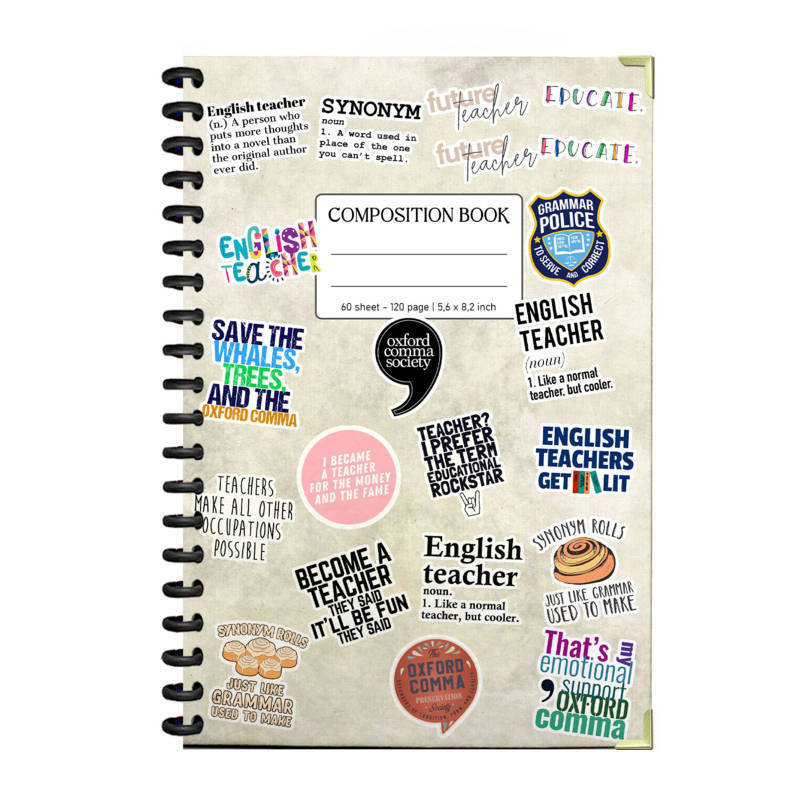 English teacher
(n.) A person who
puts more thoughts
into a novel than
the original author
ever did.
SYNONYM
noun
1. A word used in
place of the one
you can't spell.
future
Teacher
EDUCATE.
future
Teacher
EDUCATE.
COMPOSITION BOOK
60 sheet - 120 page | 5,6 x 8,2 inch
GRAMMAR
POLICE
TO SERVE AND CORRECT
ENGLISH
TEACHER
ENGLISH
TEACHER
(noun)
1. Like a normal
teacher, but cooler.
SAVE THE
WHALES,
TREES,
AND THE
OXFORD COMMA
oxford
comma
society
TEACHER?
I PREFER
THE TERM
EDUCATIONAL
ROCKSTAR
I BECAME
A TEACHER
FOR THE MONEY
AND THE FAME
ENGLISH
TEACHERS
GET LIT
TEACHERS
MAKE ALL OTHER
OCCUPATIONS
POSSIBLE
BECOME A
TEACHER
THEY SAID
IT'LL BE FUN
THEY SAID
English
teacher
noun.
1. Like a normal
teacher, but cooler.
SYNONYM ROLLS
JUST LIKE GRAMMAR
USED TO MAKE
SYNONYM ROLLS
JUST LIKE
GRAMMAR
USED TO MAKE
The
OXFORD
COMMA
PRESERVATION
Society
That's my
emotional
support
OXFORD
comma